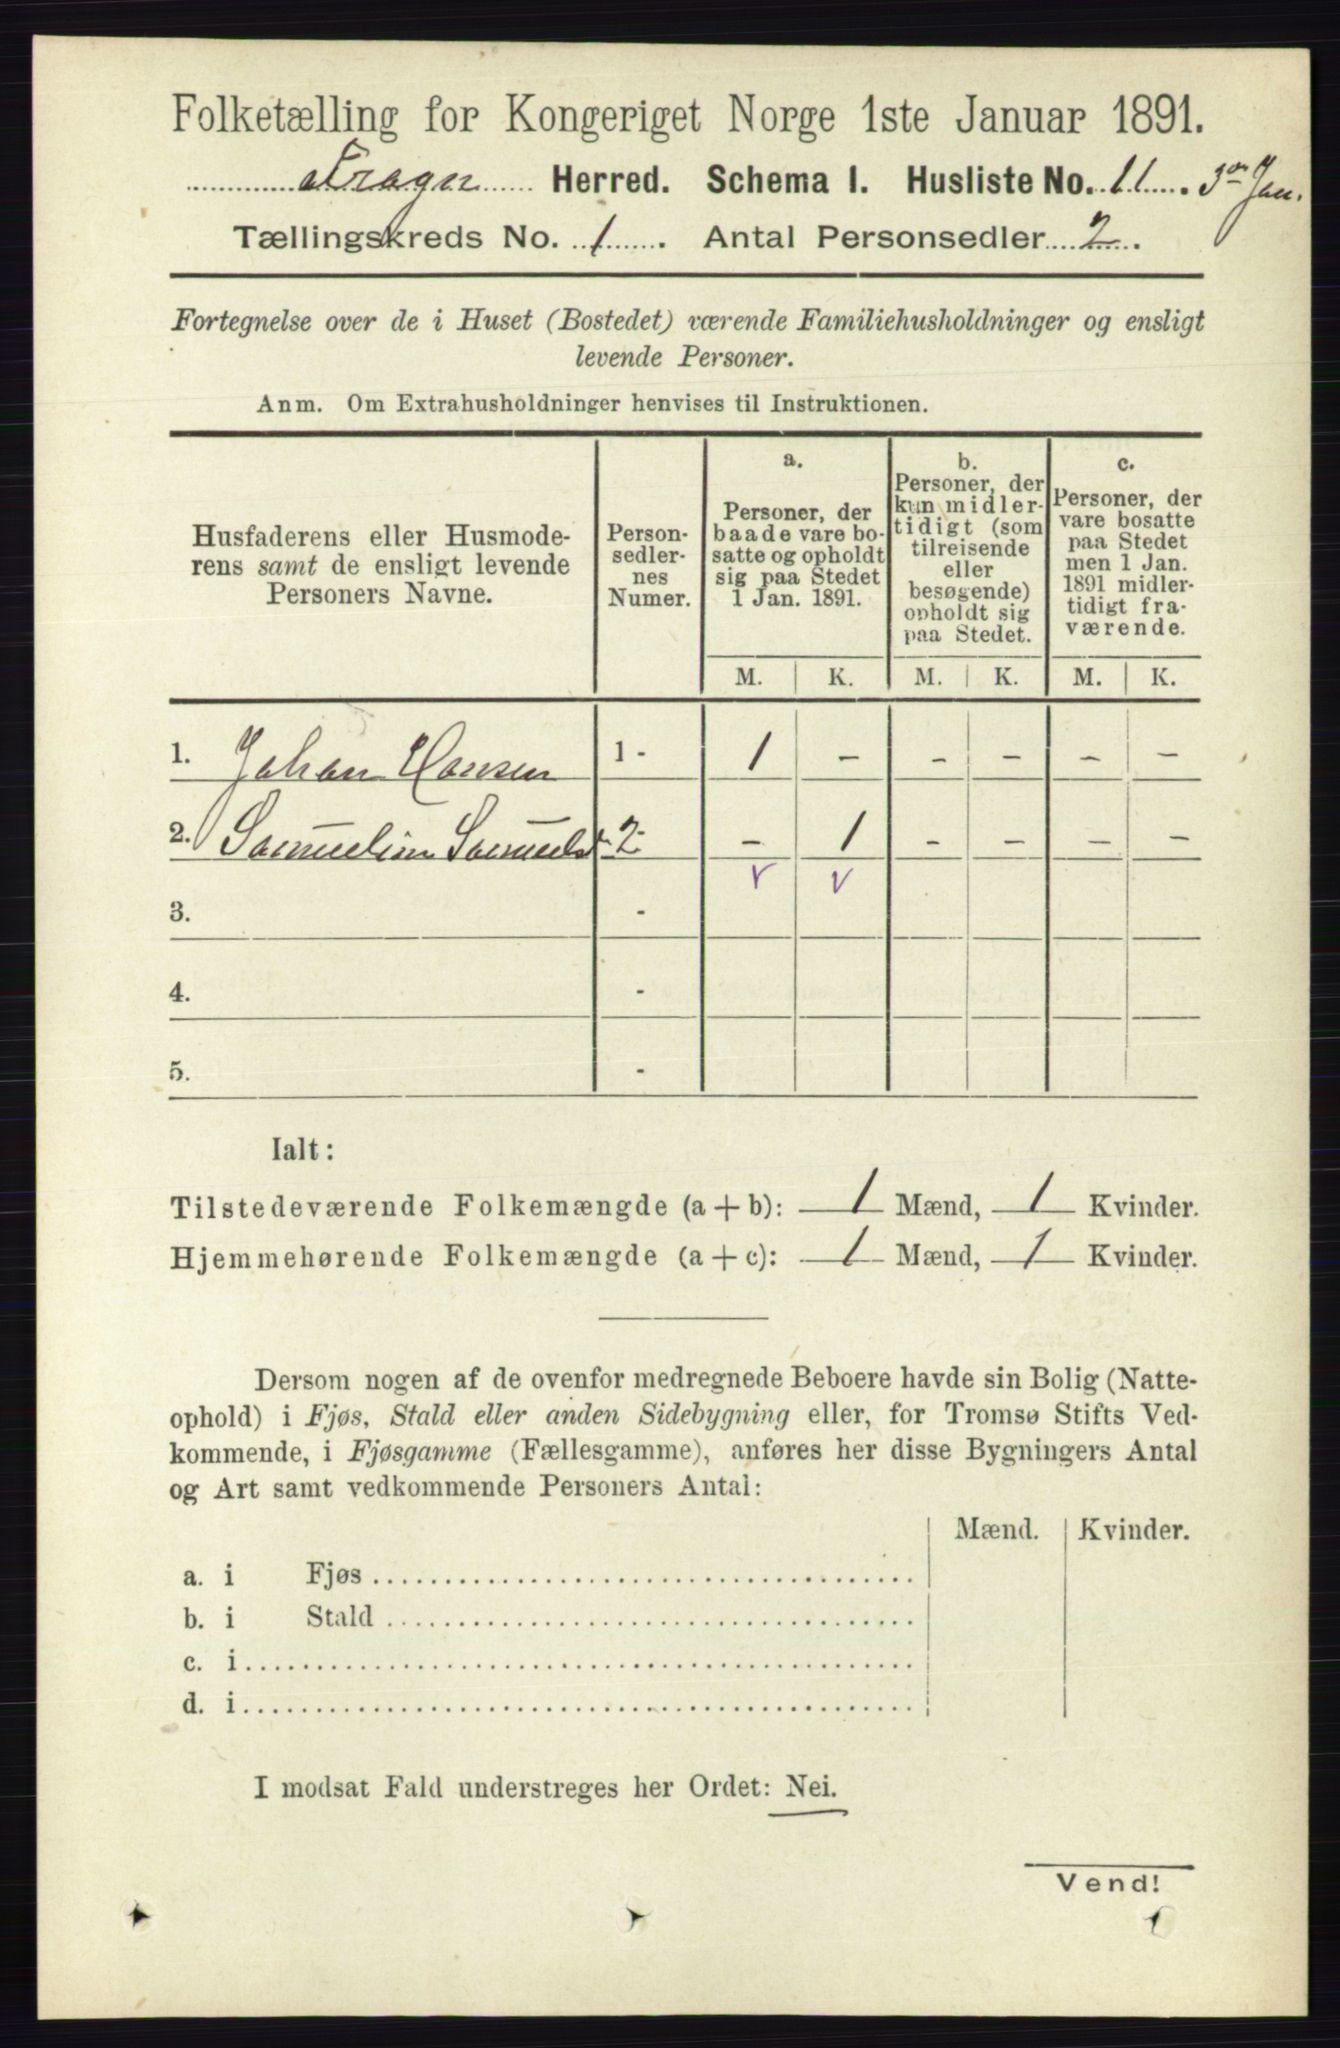 Folketælling for Kongeriget Norge 1ste Januar 1891.
Frogn Herred. Schema I. Husliste No. 11. 3die Jan.
Tællingskreds No. 1. Antal Personsedler 2.
Fortegnelse over de i Huset (Bostedet) værende Familiehusholdninger og ensligt
levende Personer.
Anm. Om Extrahusholdninger henvises til Instruktionen.
Husfaderens eller Husmode-
rens samt de ensligt levende
Personers Navne.
Person-
sedler-
nes
Numer.
a.
Personer, der
baade vare bo-
satte og opholdt
sig paa Stedet
1 Jan. 1891.
b.
Personer, der
kun midler-
tidigt (som
tilreisende
eller
besøgende)
opholdt sig
paa Stedet.
c.
Personer, der
vare bosatte
paa Stedet
men 1 Jan.
1891 midler-
tidigt fra-
værende.
M. K. M. K. M. K.
1. Johan Hansen 1 - 1 - - - - -
2. Samueline Samuelsd 2 - - 1 - - - -
v v
3. -
4. -
5. -
Ialt:
Tilstedeværende Folkemængde (a + b): 1 Mænd, 1 Kvinder.
Hjemmehørende Folkemængde (a + c): 1 Mænd, 1 Kvinder.
Dersom nogen af de ovenfor medregnede Beboere havde sin Bolig (Natte-
ophold) i Fjøs, Stald eller anden Sidebygning eller, for Tromsø Stifts Ved-
kommende, i Fjøsgamme (Fællesgamme), anføres her disse Bygningers Antal
og Art samt vedkommende Personers Antal:
Mænd. Kvinder.
a. i Fjøs
b. i Stald
c. i
d. i
I modsat Fald understreges her Ordet: Nei.
Vend!